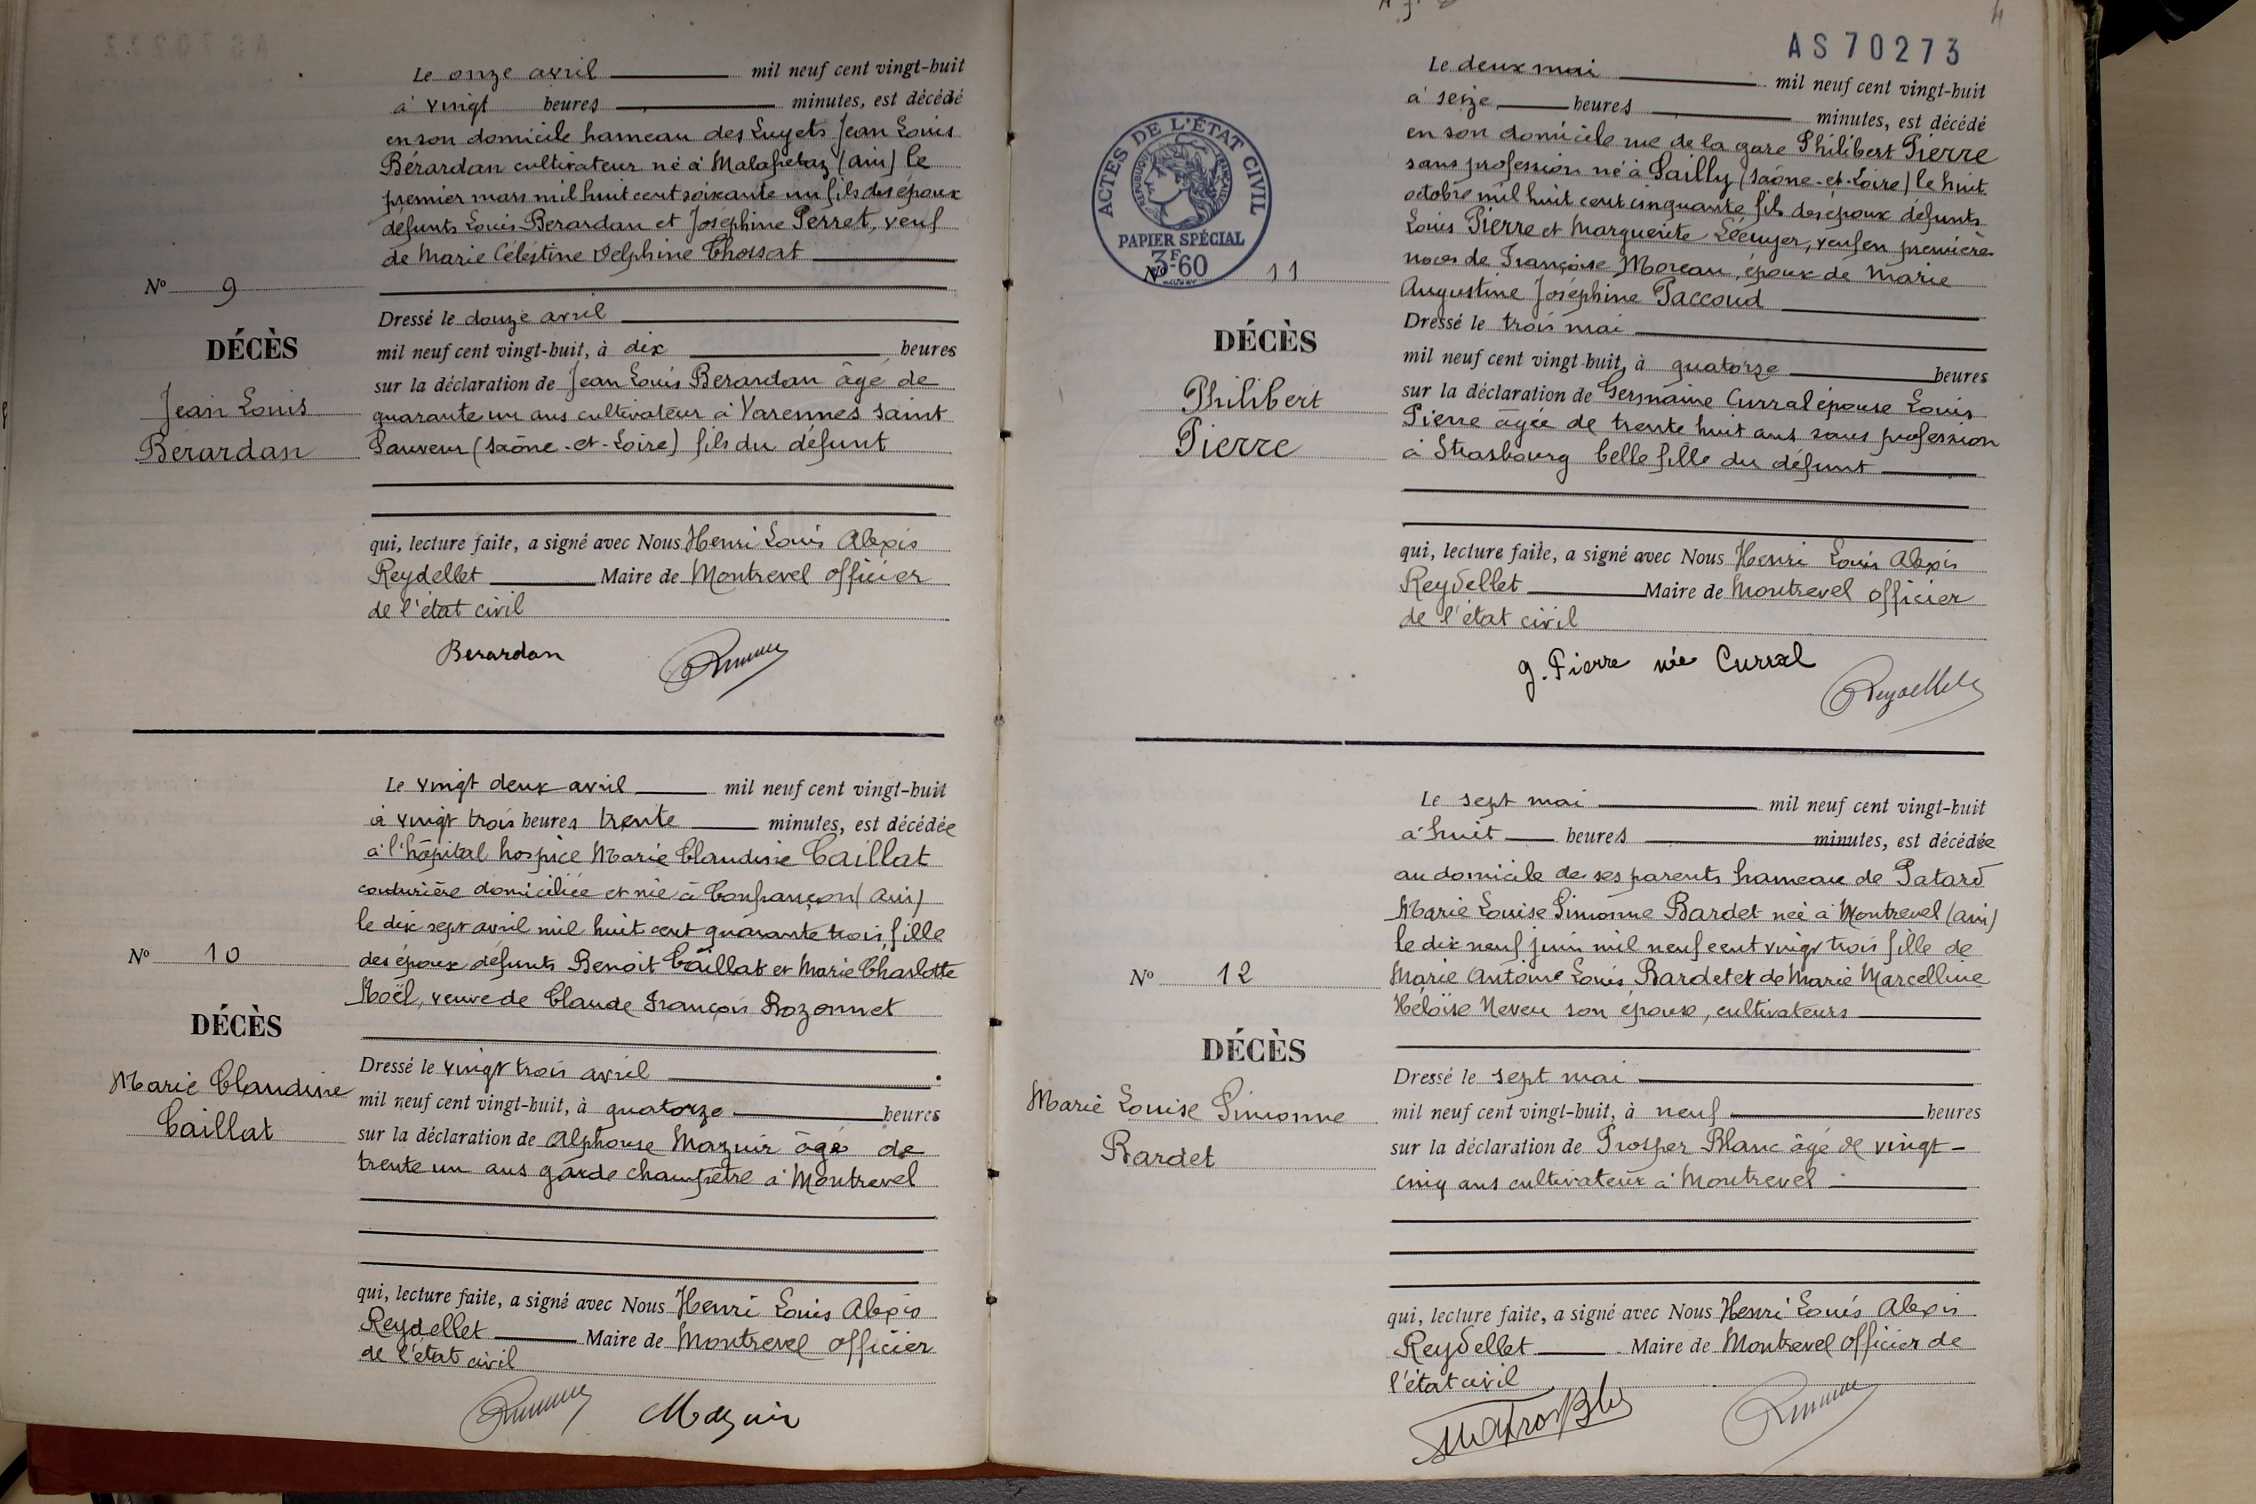 Le onze avril mil neuf cent vingt-huit
à vingt heures minutes, est décédé
en son domicile hameau des Luyets Jean Louis
Bérardan cultivateur né à Malafretaz (Ain) le
premier mars mil huit cent soixante un fils des époux
défunts Louis Berardan et Joséphine Perret, veuf
de Marie Céléstine Delphine Chossat
Nº 9
DÉCÈS
Jean Louis
Bérardan
Dressé le douze avril
mil neuf cent vingt-huit, à dix heures
sur la déclaration de Jean Louis Berardan âgé de
quarante un ans cultivateur à Varennes Saint
Sauveur (Saône-et-Loire) fils du défunt
qui, lecture faite, a signé avec Nous Henri Louis Alexis
Reydellet Maire de Montrevel officier
de l'état civil
Berardan
Le vingt deux avril mil neuf cent vingt-huit
à vingt trois heures trente minutes, est décédée
à l'hôpital hospice Marie Claudine Caillat
couturière domiciliée et née à Confrançon (Ain)
le dix sept avril mil huit cent quarante trois fille
des époux défunts Benoit Caillat et Marie Charlotte
Noël, veuve de Claude François Rozonnet
Nº 10
DÉCÈS
Marie Claudine
Caillat
Dressé le vingt trois avril
mil neuf cent vingt-huit, à quatorze heures
sur la déclaration de Alphonse Mazuir âgé de
trente un ans garde champêtre à Montrevel
qui, lecture faite, a signé avec Nous Henri Louis Alexis
Reydellet Maire de Montrevel officier
de l'état civil
Mazuir
4
AS70273
ACTES DE L'ÉTAT CIVIL
RÉPUBLIQUE FRANÇAISE
PAPIER SPÉCIAL
3F60
Le deux mai mil neuf cent vingt-huit
à seize heures minutes, est décédé
en son domicile rue de la gare Philibert Pierre
sans profession né à Sailly (Saône-et-Loire) le huit
octobre mil huit cent cinquante fils des époux défunts
Louis Pierre et Marguerite Lécuyer, veuf en première
noces de Françoise Moreau, époux de Marie
Augustine Joséphine Paccoud
Nº 11
DÉCÈS
Philibert
Pierre
Dressé le trois mai
mil neuf cent vingt-huit, à quatorze heures
sur la déclaration de Germaine Curral épouse Louis
Pierre âgée de trente huit ans sans profession
à Strasbourg belle fille du défunt
qui, lecture faite, a signé avec Nous Henri Louis Alexis
Reydellet Maire de Montrevel officier
de l'état civil
g. Pierre née Curral
Reydellet
Le sept mai mil neuf cent vingt-huit
à huit heures minutes, est décédée
au domicile de ses parents hameau de Patard
Marie Louise Simonne Bardet née à Montrevel (Ain)
le dix neuf juin mil neuf cent vingt trois fille de
Marie Antoine Louis Bardet et de Marie Marcelline
Héloïse Neveu son épouse, cultivateurs
Nº 12
DÉCÈS
Marie Louise Simonne
Bardet
Dressé le sept mai
mil neuf cent vingt-huit, à neuf heures
sur la déclaration de Prosper Blanc âgé de vingt-
cinq ans cultivateur à Montrevel
qui, lecture faite, a signé avec Nous Henri Louis Alexis
Reydellet Maire de Montrevel officier de
l'état civil